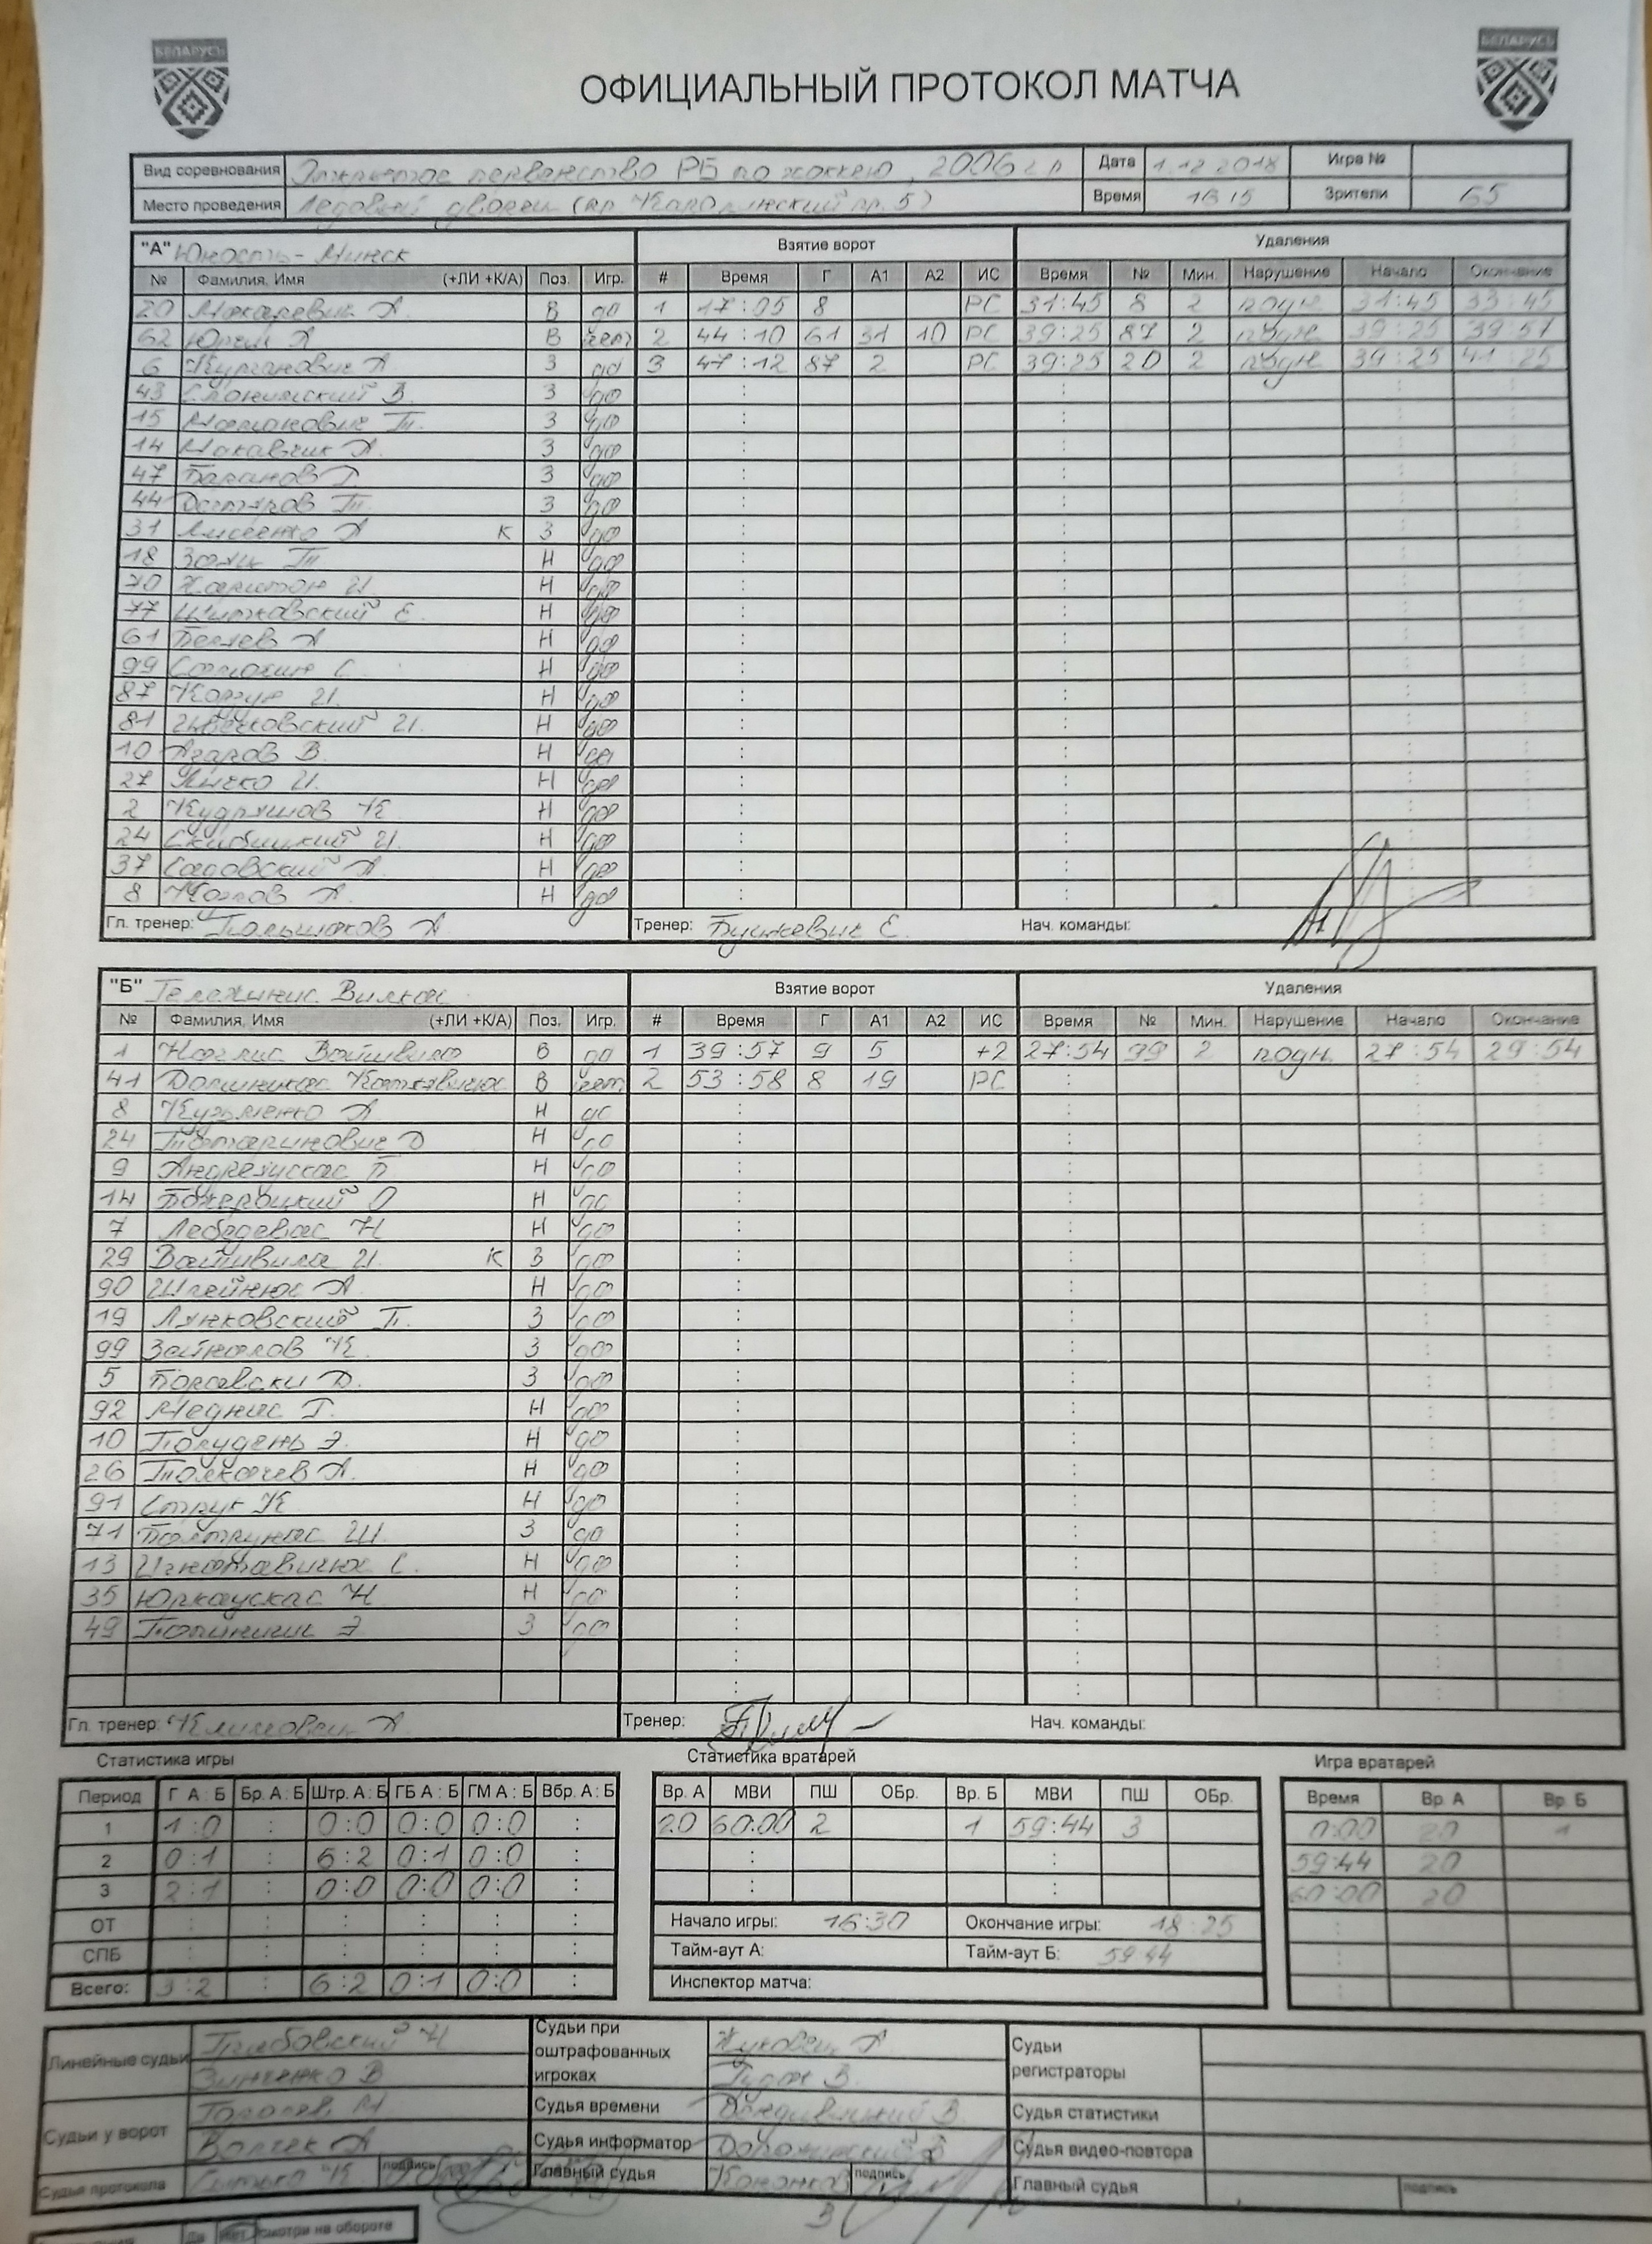 БЕЛАРУСЬ БЕЛАРУСЬ
ОФИЦИАЛЬНЫЙ ПРОТОКОЛ МАТЧА
Вид соревнования первенство РБ по хоккею, 2006 г.р Дата 1.12 2018 Игра №
Место проведения Ледовый дворец Время 16 15 Зрители 65
"А" Юность-Минск Взятие ворот Удаления
№ Фамилия, Имя (+ЛИ +К/А) Поз. Игр. # Время Г А1 А2 ИС Время № Мин. Нарушение Начало Окончание
20 Макаревич А. В да 1 17:05 8 РС 31:45 8 2 подн 31:45 33:45
62 В нет 2 44:10 61 31 10 РС 39:25 87 2 подн 39:25 39:57
6 Курганович А З да 3 47:12 87 2 РС 39:25 20 2 подн 39:25 41:25
43 Слонимский В З да
15 З да
14 Макавчик А. З да
47 Баранов Г З да
44 З да
31 Лисеенко А К З да
18 Н да
70 Харитон И. Н да
77 Е Н да
61 Беляев А Н да
99 Самохин С Н да
87 Коршун И. Н да
81 И. Н да
10 Агаров В. Н да
27 Н да
2 Кудряшов К Н да
24 Скибицкий И. Н да
37 Садовский А Н да
8 Козлов А. Н да
Гл. тренер: Большаков А Тренер: Бушкевич Е. Нач. команды:
"Б" Гележинис Вилкас Взятие ворот Удаления
№ Фамилия, Имя (+ЛИ +К/А) Поз. Игр. # Время Г А1 А2 ИС Время № Мин. Нарушение Начало Окончание
1 Войшвило В да 1 39:57 9 5 +2 27:54 99 2 подн. 27:54 29:54
41 В нет 2 53:58 8 19 РС
8 Кузьменко А Н да
24 Татаринович Д Н да
9 Н да
14 О Н да
7 Лебедевас Н Н да
29 Войшвила И. К З да
90 А Н да
19 Лянковский П. З да
99 Зайналов К. З да
5 Боровски Д. З да
92 Меднис Г. Н да
10 Полудень Э. Н да
26 Толкачев А. Н да
91 Струк К Н да
71 З да
13 Игнатавичюс С. Н да
35 Юркаускас Н. Н да
49 Э З да
Гл. тренер: Климович А Тренер: Нач. команды:
Статистика игры Статистика вратарей Игра вратарей
Период Г А : Б Бр. А : Б Штр. А : Б ГБ А : Б ГМ А : Б Вбр. А : Б Вр. А МВИ ПШ ОБр. Вр. Б МВИ ПШ ОБр. Время Вр. А Вр. Б
1 1:0 : 0:0 0:0 0:0 : 20 60:00 2 1 59:44 3 0:00 20 1
2 0:1 : 6:2 0:1 0:0 : 59:44 20
3 2:1 : 0:0 0:0 0:0 : 60:00 20
ОТ Начало игры: 16:30 Окончание игры: 18:25
СПБ Тайм-аут А: Тайм-аут Б: 59:44
Всего: 3:2 : 6:2 0:1 0:0 : Инспектор матча:
Линейные судьи Глебовский Н Судьи при оштрафованных игроках Жукович А Судьи регистраторы
Зинченко В В.
Судьи у ворот М Судья времени В. Судья статистики
Волчек А Судья информатор Судья видео-повтора
Судья протокола подпись Главный судья подпись Главный судья подпись
Да Нет смотри на обороте